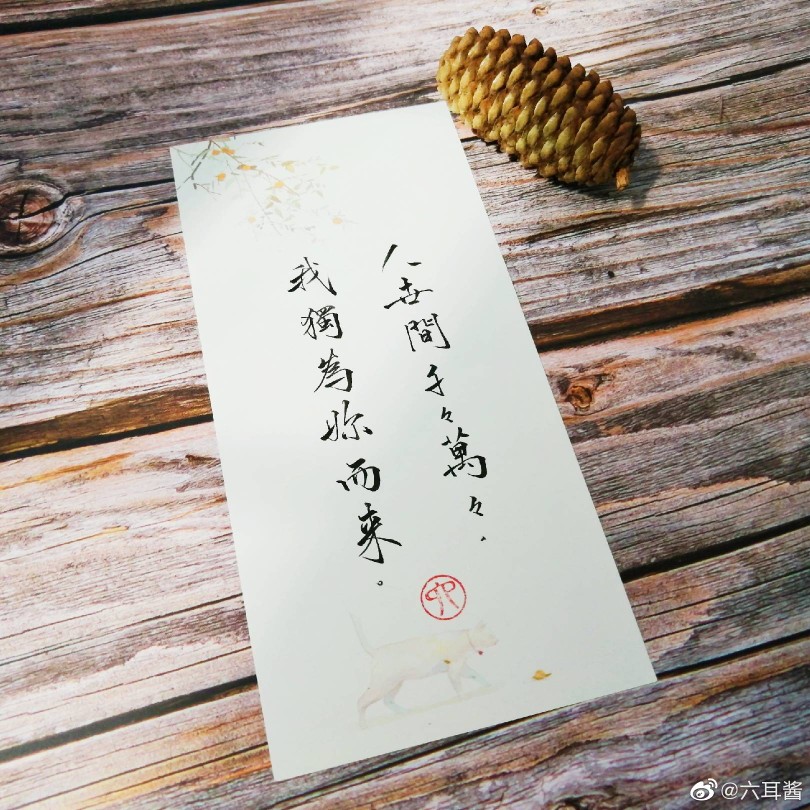 人世間千々萬々，
我獨為妳而來。
@六耳酱